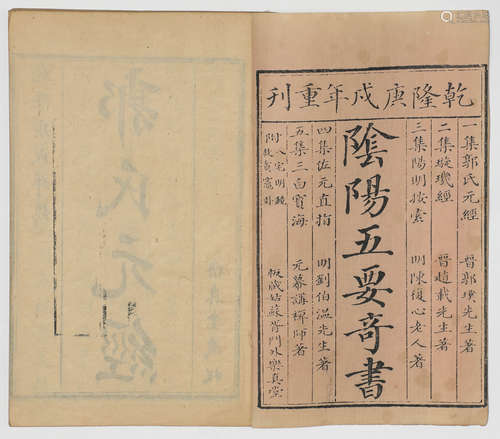 乾隆庚戌年重刊
一集郭氏元經 晉郭璞先生著
二集璇璣經 晉趙載先生著
三集陽明按索 明陳復心老人著
陰陽五要奇書
四集佐元直指 明劉伯溫先生著
五集三白寶海 元幕講禪師著
附八宅明鏡
板藏姑蘇胥門外樂真堂
郭氏元經